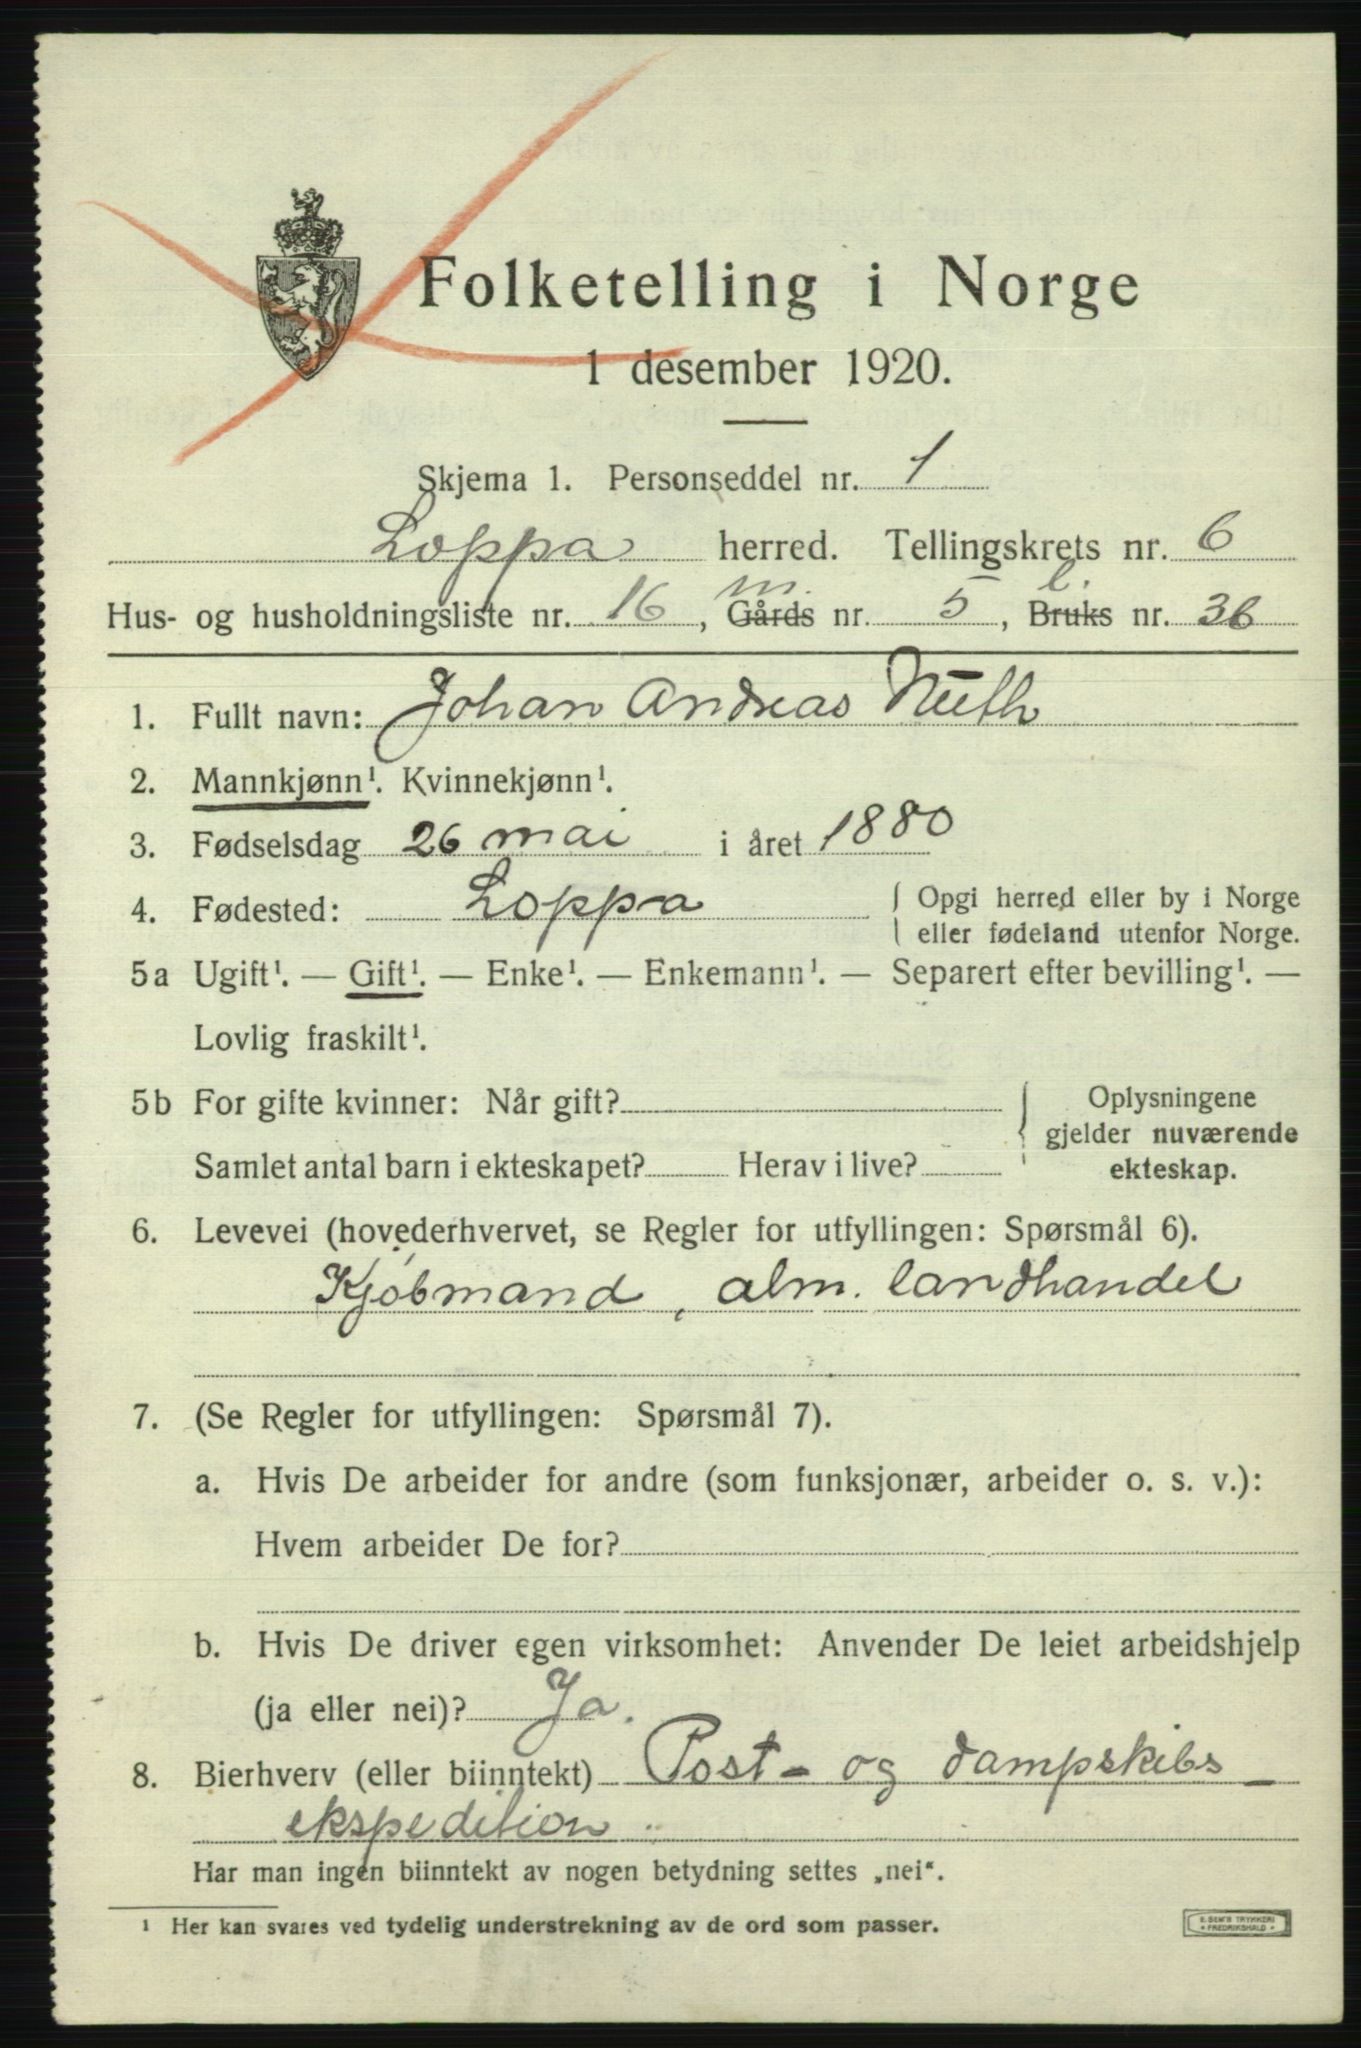 Folketelling i Norge
1 desember 1920.
Skjema 1. Personseddel nr. 1
Loppa herred. Tellingskrets nr. 6
m. l.
Hus- og husholdningsliste nr. 16, Gårds nr. 5, Bruks nr. 36
1. Fullt navn: Johan Andreas
2. Mannkjønn¹. Kvinnekjønn¹.
3. Fødselsdag 26 mai i året 1880
4. Fødested: Loppa { Opgi herred eller by i Norge
eller fødeland utenfor Norge.
5a Ugift¹. — Gift¹. — Enke¹. — Enkemann¹. — Separert efter bevilling¹. —
Lovlig fraskilt¹.
5b For gifte kvinner: Når gift? { Oplysningene
gjelder nuværende
Samlet antal barn i ekteskapet? Herav i live? ekteskap.
6. Levevei (hovederhvervet, se Regler for utfyllingen: Spørsmål 6).
Kjøbmand, alm. landhandel
7. (Se Regler for utfyllingen: Spørsmål 7).
a. Hvis De arbeider for andre (som funksjonær, arbeider o. s. v.):
Hvem arbeider De for?
b. Hvis De driver egen virksomhet: Anvender De leiet arbeidshjelp
(ja eller nei)? Ja.
8. Bierhverv (eller biinntekt) Post- og dampskibs-
ekspedition.
Har man ingen biinntekt av nogen betydning settes „nei“.
¹ Her kan svares ved tydelig understrekning av de ord som passer.
E. SEM'S TRYKKERI
• FREDRIKSHALD •